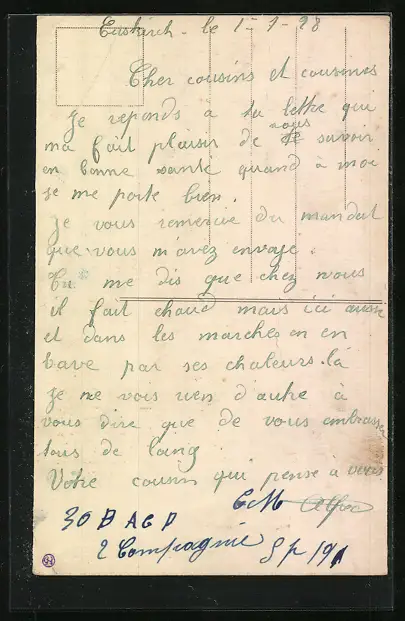 Euskirch - le 1-7-28
Cher cousins et cousines
Je reponds à ta lettre qui
ma fait plaisir de vous savoir
en bonne santé quand à moi
je me porte bien.
Je vous remercie du mandat
que vous m'avez envoye.
Tu me dis que chez vous
il fait chaud mais ici aussi
et dans les marches on en
bave par ses chaleurs.là
Je ne vois rien d'autre à
vous dire que de vous embrasser
tous de loing.
Votre cousin qui pense à vous
30 B A C P
2 Compagnie S p 191